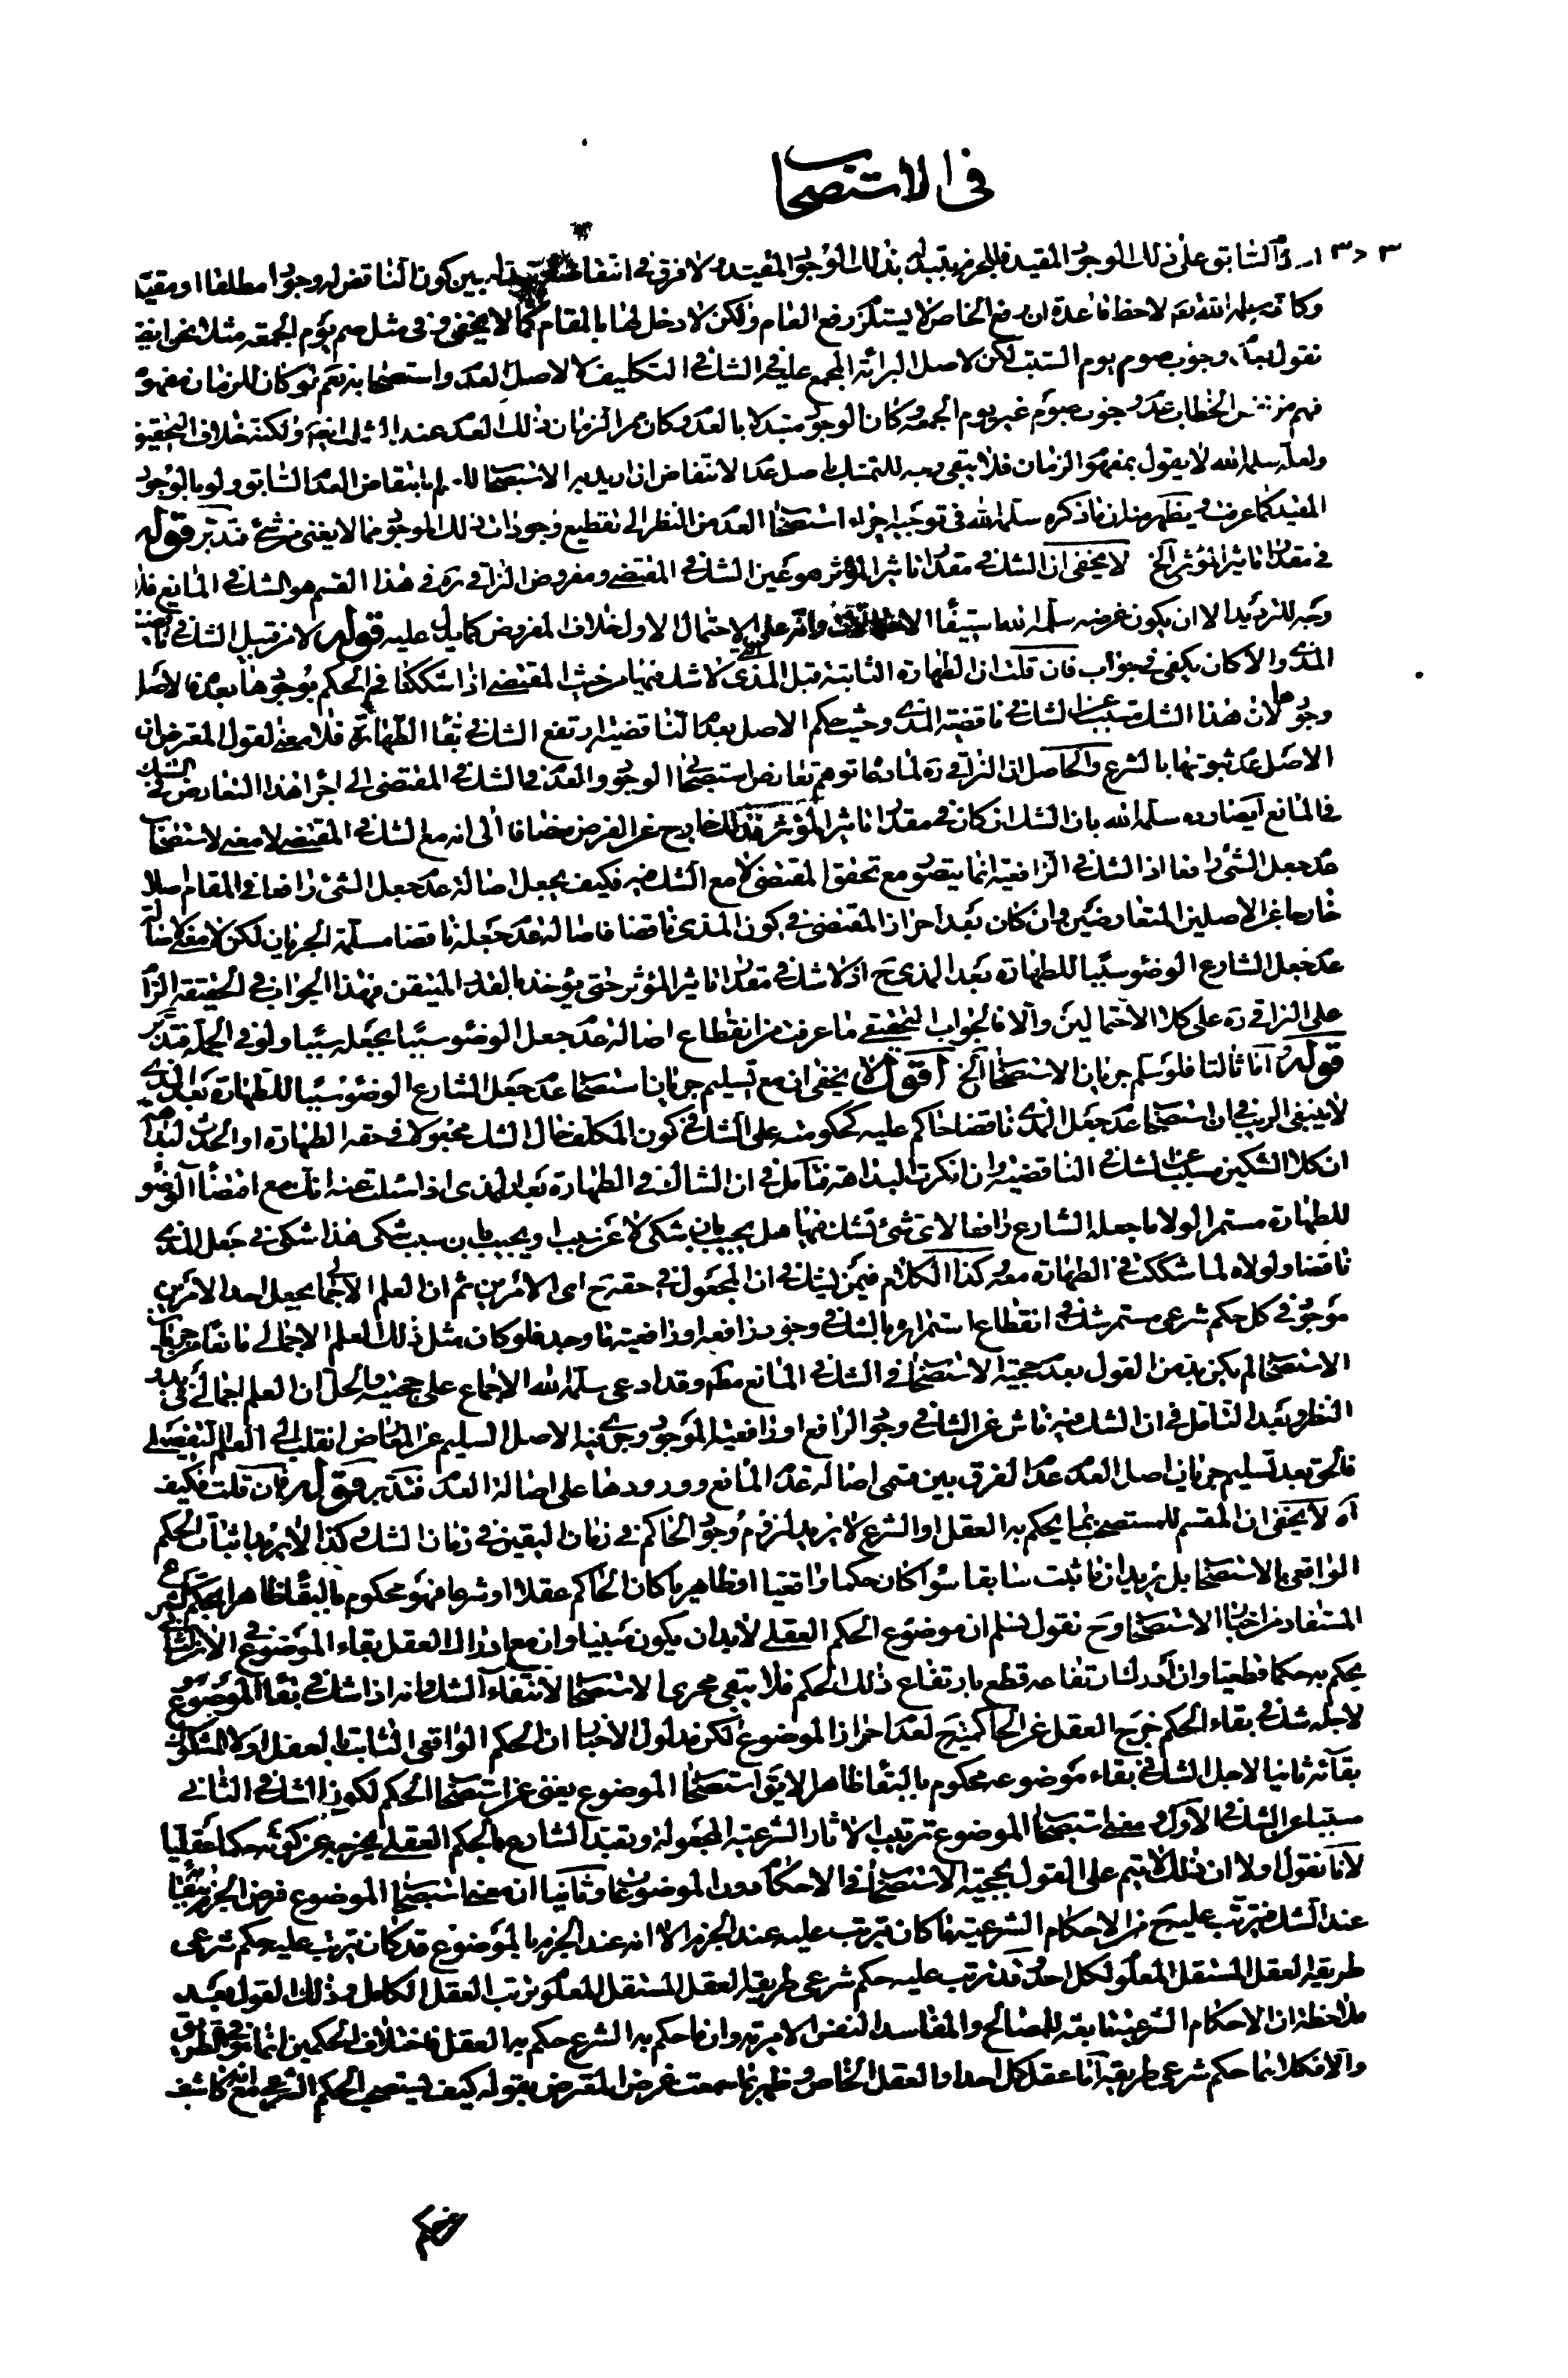 في الاستصحاب
السابق على ذلك الوجوب المقيد فللجزم بتبدله بذلك الوجوب المقيد ولا فرق في انتقاضه بين كون الناقض له وجوبا مطلقا او مقيدا
وكانه سلمه الله تعم لاحظ قاعدة ان رفع الخاص لا يستلزم رفع العام ولكن لا دخل لها بالمقام كما لا يخفى وفي مثل صم يوم الجمعة مثلا نحن ايضا
نقول بعدم وجوب صوم يوم السبت لكن لاصل البرائة المجمع عليه في الشك في التكليف لا لاصل العدم واستصحابه نعم لو كان للزمان مفهوم
فهم من الخطاب عدم وجوب صوم غير يوم الجمعة وكان الوجوب متبدلا بالعدم وكان مر الزمان ذلك العدم عند ولكنه خلاف التحقيق
ولعله سلمه الله لا يقول بمفهوم الزمان فلا يبقى وجه للتمسك باصل عدم الانتقاض ان اريد به الاستصحاب بانتقاض العدم السابق ولو بالوجود
المقيد كما عرفت ويظهر منه ان ما ذكره سلمه الله في توجيه اجراء استصحاب العدم من النظر الى تقطيع وجودات ذلك الموجود مما لا يغني من شئ فتدبر قوله
في مقدار تاثير المؤثر الخ لا يخفى ان الشك في مقدار تاثير المؤثر هو عين الشك في المقتضى ومفروض النراقي ره في هذا القسم هو الشك في المانع فلا
وجه للترديد الا ان يكون غرضه سلمه الله استيفاء الاحتمالات وانه على الاحتمال الاول خلاف المفروض كما يدل عليه قوله لا من قبيل الشك في ناقضية
المذي والا كان يكفي في جواب فان قلت ان الطهارة الثابتة قبل المذي لا شك فيها من حيث المقتضى اذا شككنا في الحكم بوجودها بعده فالاصل
وجودها لان هذا الشك مسبب عن الشك في ناقضية المذي وحيث حكم الاصل بعدم الناقضية ارتفع الشك في بقاء الطهارة فلا معنى لقول المعترض ان
الاصل عدم ثبوتها بالشرع والحاصل ان النراقي ره لما توهم تعارض استصحابي الوجود والعدم في الشك في المقتضى الى اجراء هذا التعارض في الشك
في المانع ايضا رده سلمه الله بان الشك ان كان في مقدار تاثير المؤثر فذلك خارج عن الفرض مضافا الى انه مع الشك في المقتضى لا معنى لاستصحاب
عدم جعل الشئ رافعا اذ الشك في الرافعية انما يتصور مع تحقق المقتضى لا مع الشك فيه فكيف يجعل اصالة عدم جعل الشئ رافعا في المقام اصلا
خارجا عن الاصلين المتعارضين وان كان بعد احراز المقتضى في كون المذي ناقضا فاصالة عدم جعله ناقضا مسلمة الجريان لكن لا معنى لاصالة
عدم جعل الشارع الوضوء سببا للطهارة بعد المذي ح اذ لا شك في مقدار تاثير المؤثر حتى يؤخذ بالقدر المتيقن فهذا الجواب في الحقيقة الزام
على النراقي ره على كلا الاحتمالين والا فالجواب التحقيقي ما عرفت من انقطاع اصالة عدم جعل الوضوء سببا بجعله سببا ولو في الجملة فتدبر
قوله اما ثالثا فلو سلم جريان الاستصحاب الخ اقول لا يخفى ان مع تسليم جريان استصحاب عدم جعل الشارع الوضوء سببا للطهارة بعد المذي
لا ينبغي الريب في ان استصحاب عدم جعل المذي ناقضا حاكم عليه كحكومته على الشك في كون المكلف حال الشك مجعولا في حقه الطهارة او الحدث لبداهة
ان كلا الشكين مسبب عن الشك في الناقضية وان انكرت البداهة فتامل في ان الشاك في الطهارة بعد المذي اذا سئلت عنه انك مع اقتضاء الوضوء
للطهارة مستمرا لولا ما جعله الشارع رافعا لاي شئ تشك فيها هل يجيب بان شكي لا عن سبب او يجيب بان سبب شكي هذا شكي في جعل المذي
ناقضا ولولاه لما شككت في الطهارة معه كذا الكلام فيمن يشك في ان المجعول في حقه ح اي الامرين ثم ان العلم الاجمالي بجعل احد الامرين
موجود في كل حكم شرعي مستمر شك في انقطاع استمراره بالشك في وجود رافعه او رافعية ما وجد فلو كان مثل ذلك العلم الاجمالي مانعا من جريان
الاستصحاب لم يكن بد من القول بعدم حجية الاستصحاب في الشك في المانع مطلقا وقد ادعى سلمه الله الاجماع على حجيته والحل ان العلم اجمالي في بدو
النظر وبعد التامل في ان الشك فيه ناش عن الشك في وجود الرافع او رافعية الموجود وجرى فيه الاصل السليم عن المعارض انقلب الى العلم التفصيلي
فالحق بعد تسليم جريان اصل العدم عدم الفرق بين قسمي اصالة عدم المانع وورودها على اصالة العدم فتدبر قوله فان قلت فكيف
آه لا يخفى ان المقسم للمستصحب بما يحكم به العقل او الشرع لا يريد لزوم وجود الحاكم في زمان اليقين في زمان الشك وكذا لا يريد اثبات الحكم
الواقعي بالاستصحاب بل يريد ان ما ثبت سابقا سواء كان حكما واقعيا او ظاهريا كان الحاكم عقلا او شرعا فهو محكوم بالبقاء ظاهرا بحكم الشرع
المستفاد من اخبار الاستصحاب وح نقول نسلم ان موضوع الحكم العقلي لا بد ان يكون مبينا وان مع ادراك العقل بقاء الموضوع في الآن الثاني
يحكم به حكما قطعيا وان ادرك ارتفاعه قطع بارتفاع ذلك الحكم فلا يبقى مجرى الاستصحاب لانتفاء الشك وانه اذا شك في بقاء الموضوع
لاجله شك في بقاء الحكم خرج العقل عن الحاكمية ح لعدم احراز الموضوع لكن مدلول الاخبار ان الحكم الواقعي الثابت بالعقل اولا المشكوك
بقائه ثانيا لاجل الشك في بقاء موضوعه محكوم بالبقاء ظاهرا لا يق استصحاب الموضوع يغني عن استصحاب الحكم لكون الشك في الثاني
مسببا عن الشك في الاول ومعنى استصحاب الموضوع ترتيب الاثار الشرعية المجعولة وتعبد الشارع بالحكم العقلي يخرجه عن كونه حكما عقليا
لانا نقول اولا ان ذلك لا يتم على القول بحجية الاستصحاب في الاحكام دون الموضوعات وثانيا ان معنى استصحاب الموضوع فرض الجزم ببقائه
عند الشك فيترتب عليه ح من الاحكام الشرعية ما كان يترتب عليه عند الجزم الا انه عند الجزم بالموضوع قد كان يترتب عليه حكم شرعي
طريقه العقل المستقل المعلوم لكل احد وقد ترتب عليه حكم شرعي طريقه العقل المستقل المعلوم ترتب العقل الكامل وذلك القول بعد
ملاحظة ان الاحكام الشرعية تابعة للمصالح والمفاسد النفس الامرية وان ما حكم به الشرع حكم به العقل فاختلاف الحكمين انما هو في الطريق
والا فكلاهما حكم شرعي طريقه اما عقل كل احد او العقل الخاص وظهر بما سمعت غرض المعترض بقوله كيف يستصحب الحكم الشرعي مع انه كاشف